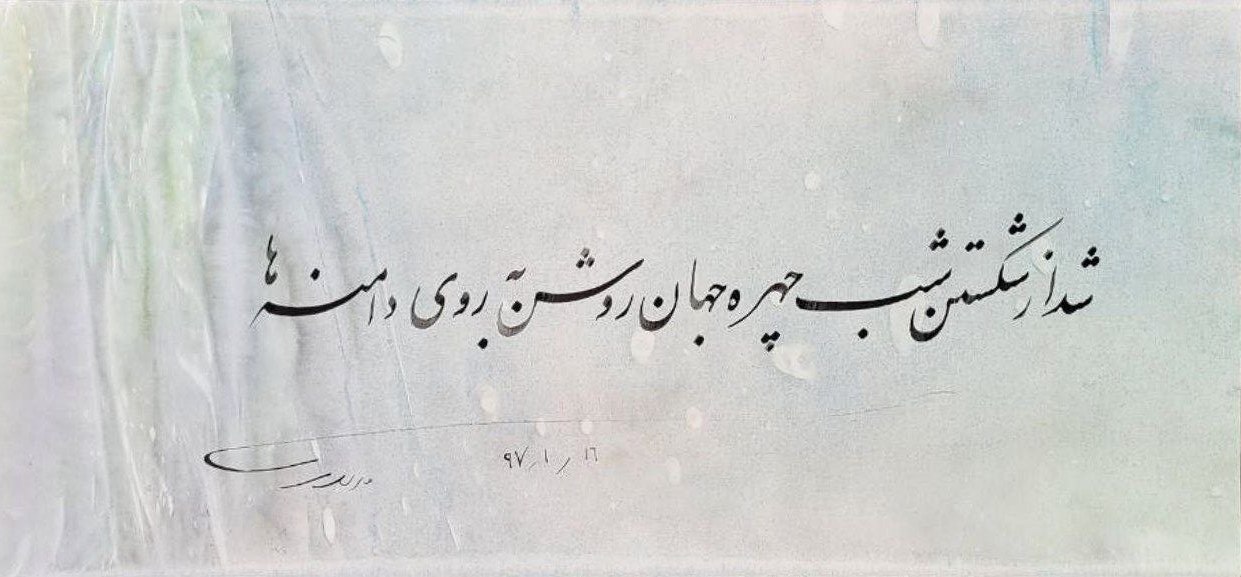 شد از شکستن شب چهره جهان روشن به روی دامنه ها
۹۷٫۱٫۱۶